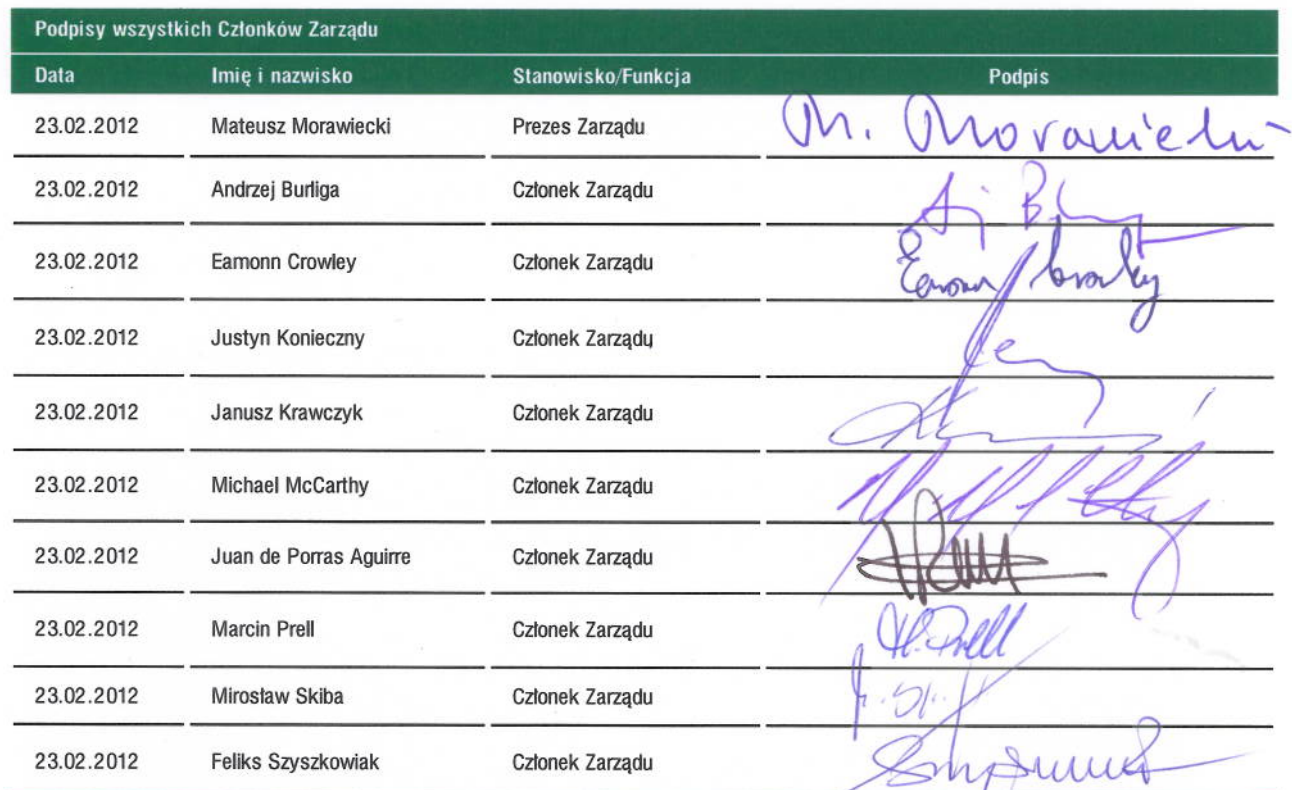 Podpisy wszystkich Członków Zarządu
Data Imię i nazwisko Stanowisko/Funkcja Podpis
23.02.2012 Mateusz Morawiecki Prezes Zarządu M. Morawiecki
23.02.2012 Andrzej Burliga Członek Zarządu
23.02.2012 Eamonn Crowley Członek Zarządu Eamonn Crowley
23.02.2012 Justyn Konieczny Członek Zarządu
23.02.2012 Janusz Krawczyk Członek Zarządu
23.02.2012 Michael McCarthy Członek Zarządu
23.02.2012 Juan de Porras Aguirre Członek Zarządu
23.02.2012 Marcin Prell Członek Zarządu M. Prell
23.02.2012 Mirosław Skiba Członek Zarządu
23.02.2012 Feliks Szyszkowiak Członek Zarządu